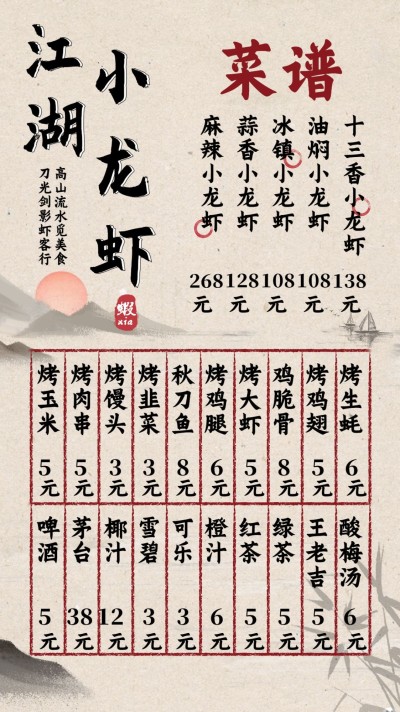 江湖
小龙虾
高山流水觅美食
刀光剑影虾客行
蝦
XIA
菜谱
麻辣小龙虾 268元
蒜香小龙虾 128元
冰镇小龙虾 108元
油焖小龙虾 108元
十三香小龙虾 138元
烤玉米 5元
烤肉串 5元
烤馒头 3元
烤韭菜 3元
秋刀鱼 8元
烤鸡腿 6元
烤大虾 5元
鸡脆骨 8元
烤鸡翅 5元
烤生蚝 6元
啤酒 5元
茅台 38元
椰汁 12元
雪碧 3元
可乐 3元
橙汁 6元
红茶 5元
绿茶 5元
王老吉 5元
酸梅汤 6元